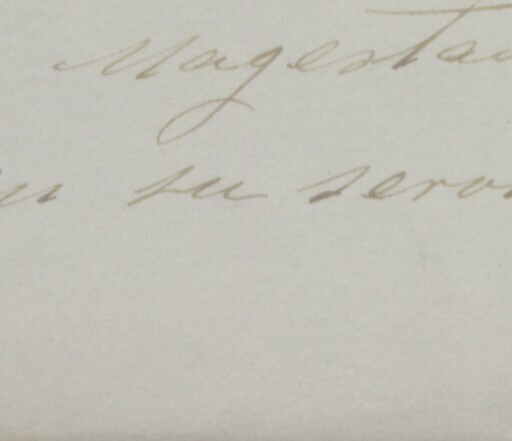 Magestad
su servi